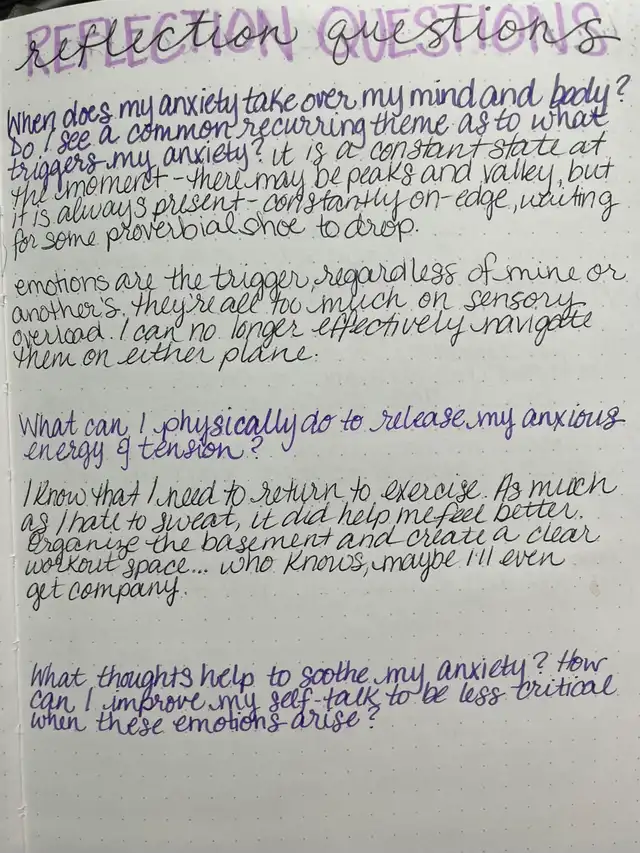 REFLECTION QUESTIONS
reflection questions
When does my anxiety take over my mind and body?
Do I see a common recurring theme as to what
triggers my anxiety? it is a constant state at
the moment - there may be peaks and valley, but
it is always present - constantly on-edge, waiting
for some proverbial shoe to drop.
emotions are the trigger, regardless of mine or
another's. they're all too much on sensory
overload. I can no longer effectively navigate
them on either plane.
What can I physically do to release my anxious
energy & tension?
I know that I need to return to exercise. As much
as I hate to sweat, it did help me feel better.
Organize the basement and create a clear
workout space... who knows, maybe I'll even
get company.
What thoughts help to soothe my anxiety? How
can I improve my self-talk to be less critical
when these emotions arise?